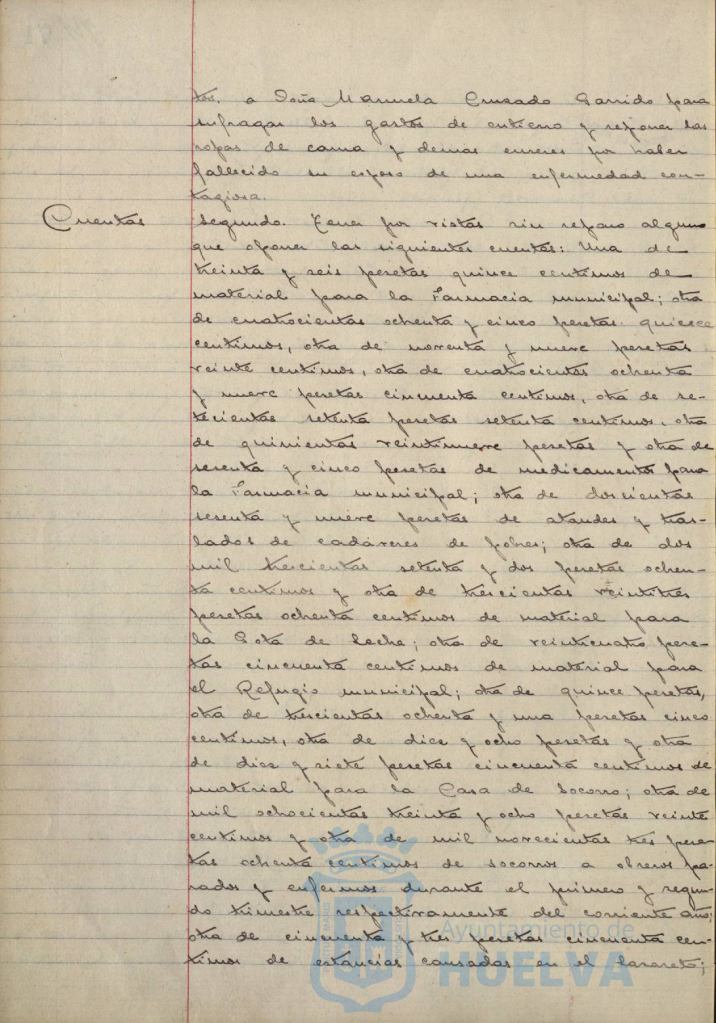 tos. a Doña Manuela Cruzado Garrido para
sufragar los gastos de entierro y reponer las
ropas de cama y demas enseres por haber
fallecido su esposo de una enfermedad con-
tagiosa.
Cuentas
Segundo. Tener por vistas sin reparo alguno
que oponer las siguientes cuentas: Una de
treinta y seis pesetas quince centimos de
material para la Farmacia municipal; otra
de cuatrocientas ochenta y cinco pesetas quince
centimos, otra de noventa y nueve pesetas
veinte centimos, otra de cuatrocientas ochenta
y nueve pesetas cincuenta centimos, otra de se-
tecientas setenta pesetas setenta centimos, otra
de quinientas veintinueve pesetas y otra de
sesenta y cinco pesetas de medicamentos para
la Farmacia municipal; otra de doscientas
sesenta y nueve pesetas de ataudes y tras-
lados de cadáveres de pobres; otra de dos
mil trescientas setenta y dos pesetas ochen-
ta centimos y otra de trescientas veintitres
pesetas ochenta centimos de material para
la Gota de Leche; otra de veinticuatro pese-
tas cincuenta centimos de material para
el Refugio municipal; otra de quince pesetas,
otra de trescientas ochenta y una pesetas cinco
centimos, otra de diez y ocho pesetas y otra
de diez y siete pesetas cincuenta centimos de
material para la Casa de Socorro; otra de
mil ochocientas treinta y ocho pesetas veinte
centimos y otra de mil novecientas tres pese-
tas ochenta centimos de socorros a obreros pa-
rados y enfermos durante el primero y segun-
do trimestre respectivamente del corriente año;
otra de cincuenta y tres pesetas cincuenta cen-
timos de estancias causadas en el Lazareto;
Ayuntamiento de
HUELVA